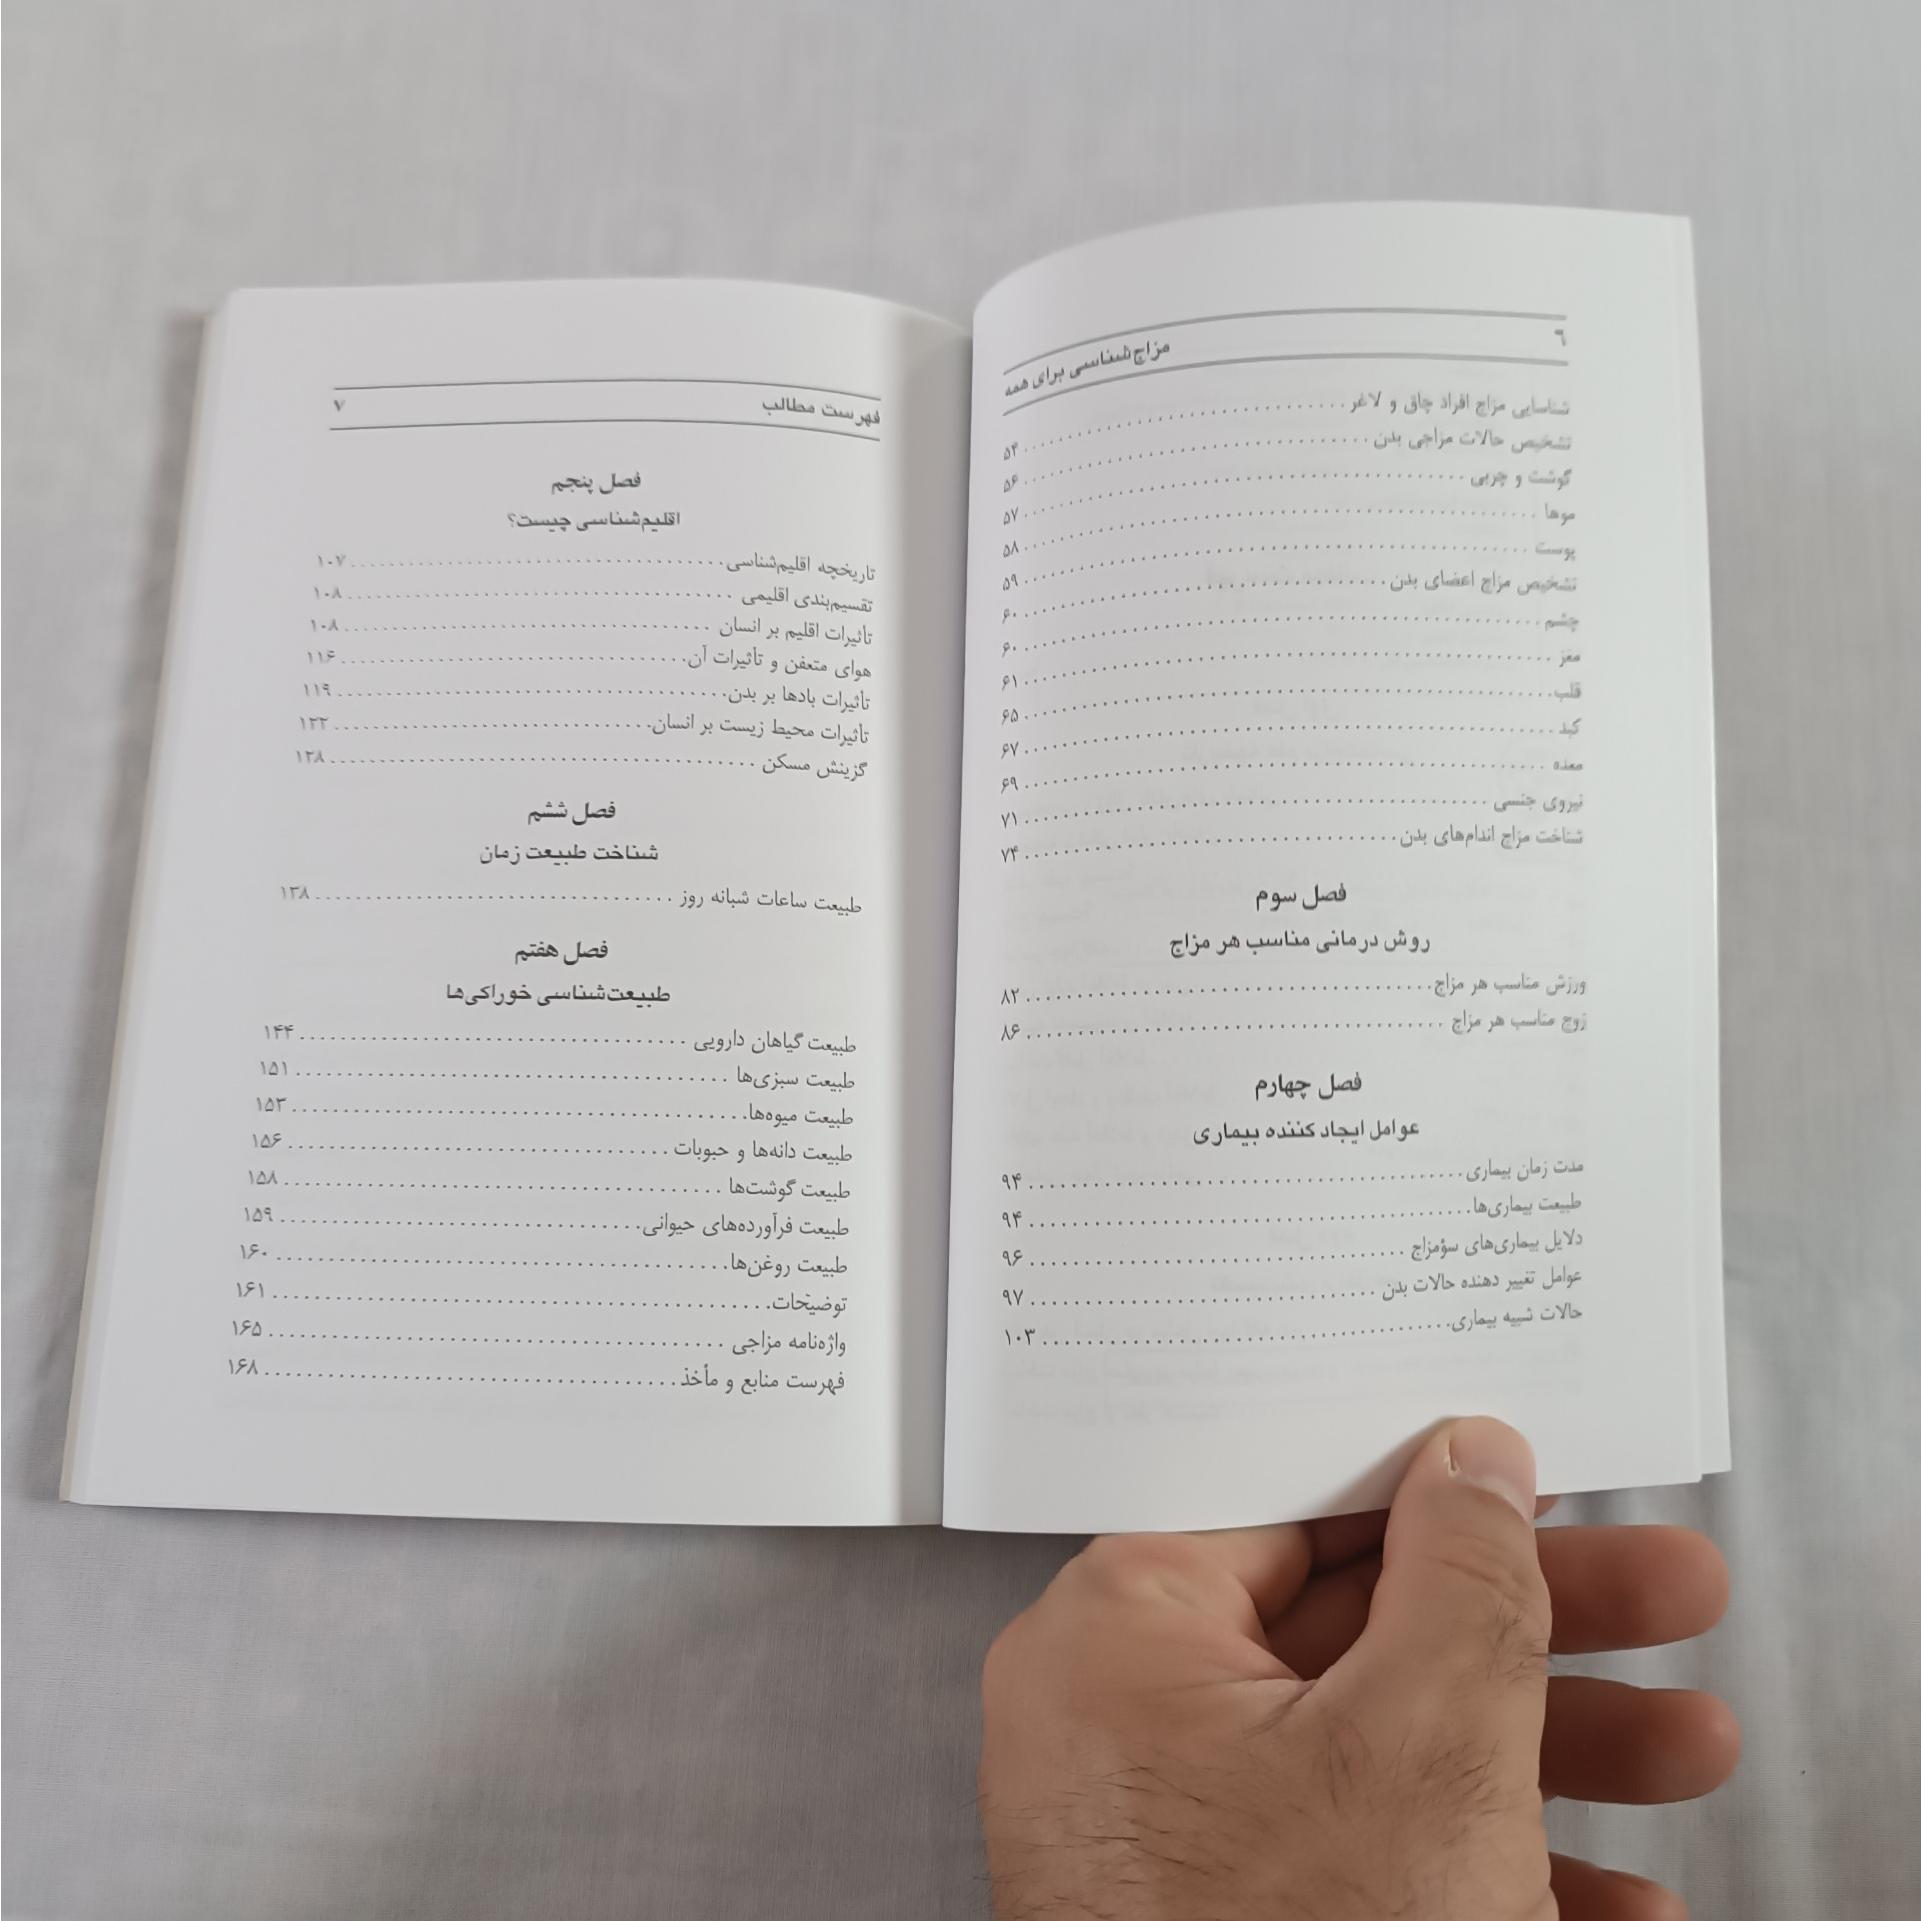 ۶ مزاج‌شناسی برای همه
شناسایی مزاج افراد چاق و لاغر ........ ۵۴
تشخیص حالات مزاجی بدن ........ ۵۶
گوشت و چربی ........ ۵۷
موها ........ ۵۸
پوست ........ ۵۹
تشخیص مزاج اعضای بدن ........ ۶۰
چشم ........ ۶۰
مغز ........ ۶۱
قلب ........ ۶۵
کبد ........ ۶۷
معده ........ ۶۹
نیروی جنسی ........ ۷۱
شناخت مزاج اندام‌های بدن ........ ۷۴
فصل سوم
روش درمانی مناسب هر مزاج
ورزش مناسب هر مزاج ........ ۸۲
زوج مناسب هر مزاج ........ ۸۶
فصل چهارم
عوامل ایجاد کننده بیماری
مدت زمان بیماری ........ ۹۴
طبیعت بیماری‌ها ........ ۹۴
دلایل بیماری‌های سؤمزاج ........ ۹۶
عوامل تغییر دهنده حالات بدن ........ ۹۷
حالات شبیه بیماری ........ ۱۰۳
فهرست مطالب ۷
فصل پنجم
اقلیم‌شناسی چیست؟
تاریخچه اقلیم‌شناسی ........ ۱۰۷
تقسیم‌بندی اقلیمی ........ ۱۰۸
تأثیرات اقلیم بر انسان ........ ۱۰۸
هوای متعفن و تأثیرات آن ........ ۱۱۶
تأثیرات بادها بر بدن ........ ۱۱۹
تأثیرات محیط زیست بر انسان ........ ۱۲۲
گزینش مسکن ........ ۱۲۸
فصل ششم
شناخت طبیعت زمان
طبیعت ساعات شبانه روز ........ ۱۳۸
فصل هفتم
طبیعت‌شناسی خوراکی‌ها
طبیعت گیاهان دارویی ........ ۱۴۴
طبیعت سبزی‌ها ........ ۱۵۱
طبیعت میوه‌ها ........ ۱۵۳
طبیعت دانه‌ها و حبوبات ........ ۱۵۶
طبیعت گوشت‌ها ........ ۱۵۸
طبیعت فرآورده‌های حیوانی ........ ۱۵۹
طبیعت روغن‌ها ........ ۱۶۰
توضیحات ........ ۱۶۱
واژه‌نامه مزاجی ........ ۱۶۵
فهرست منابع و مأخذ ........ ۱۶۸